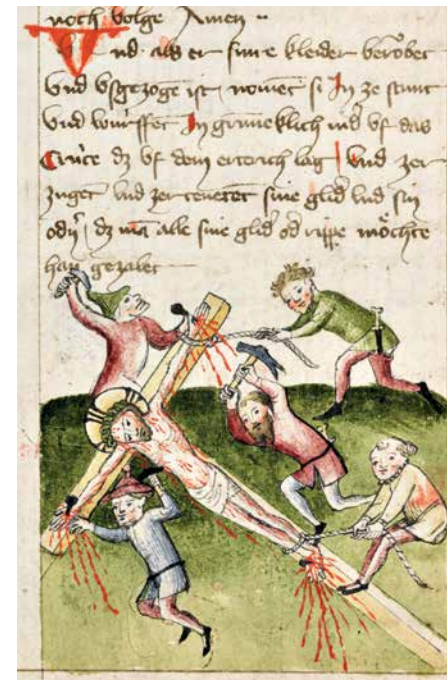 noch volge Amen
Vnd als er sine kleider berobet
vnd vsgezogē ist nomēt si Jn ze stunt
vnd wurffet Jn grim̄eklich nid vf das
Crúcē dz vf dem ertrich lag vnd zer
zugēt vnd zertenetēt sine glid̄ vnd sin
odrī dz mā alle sine glid̄ od̄ rippe möchte
han gezalet